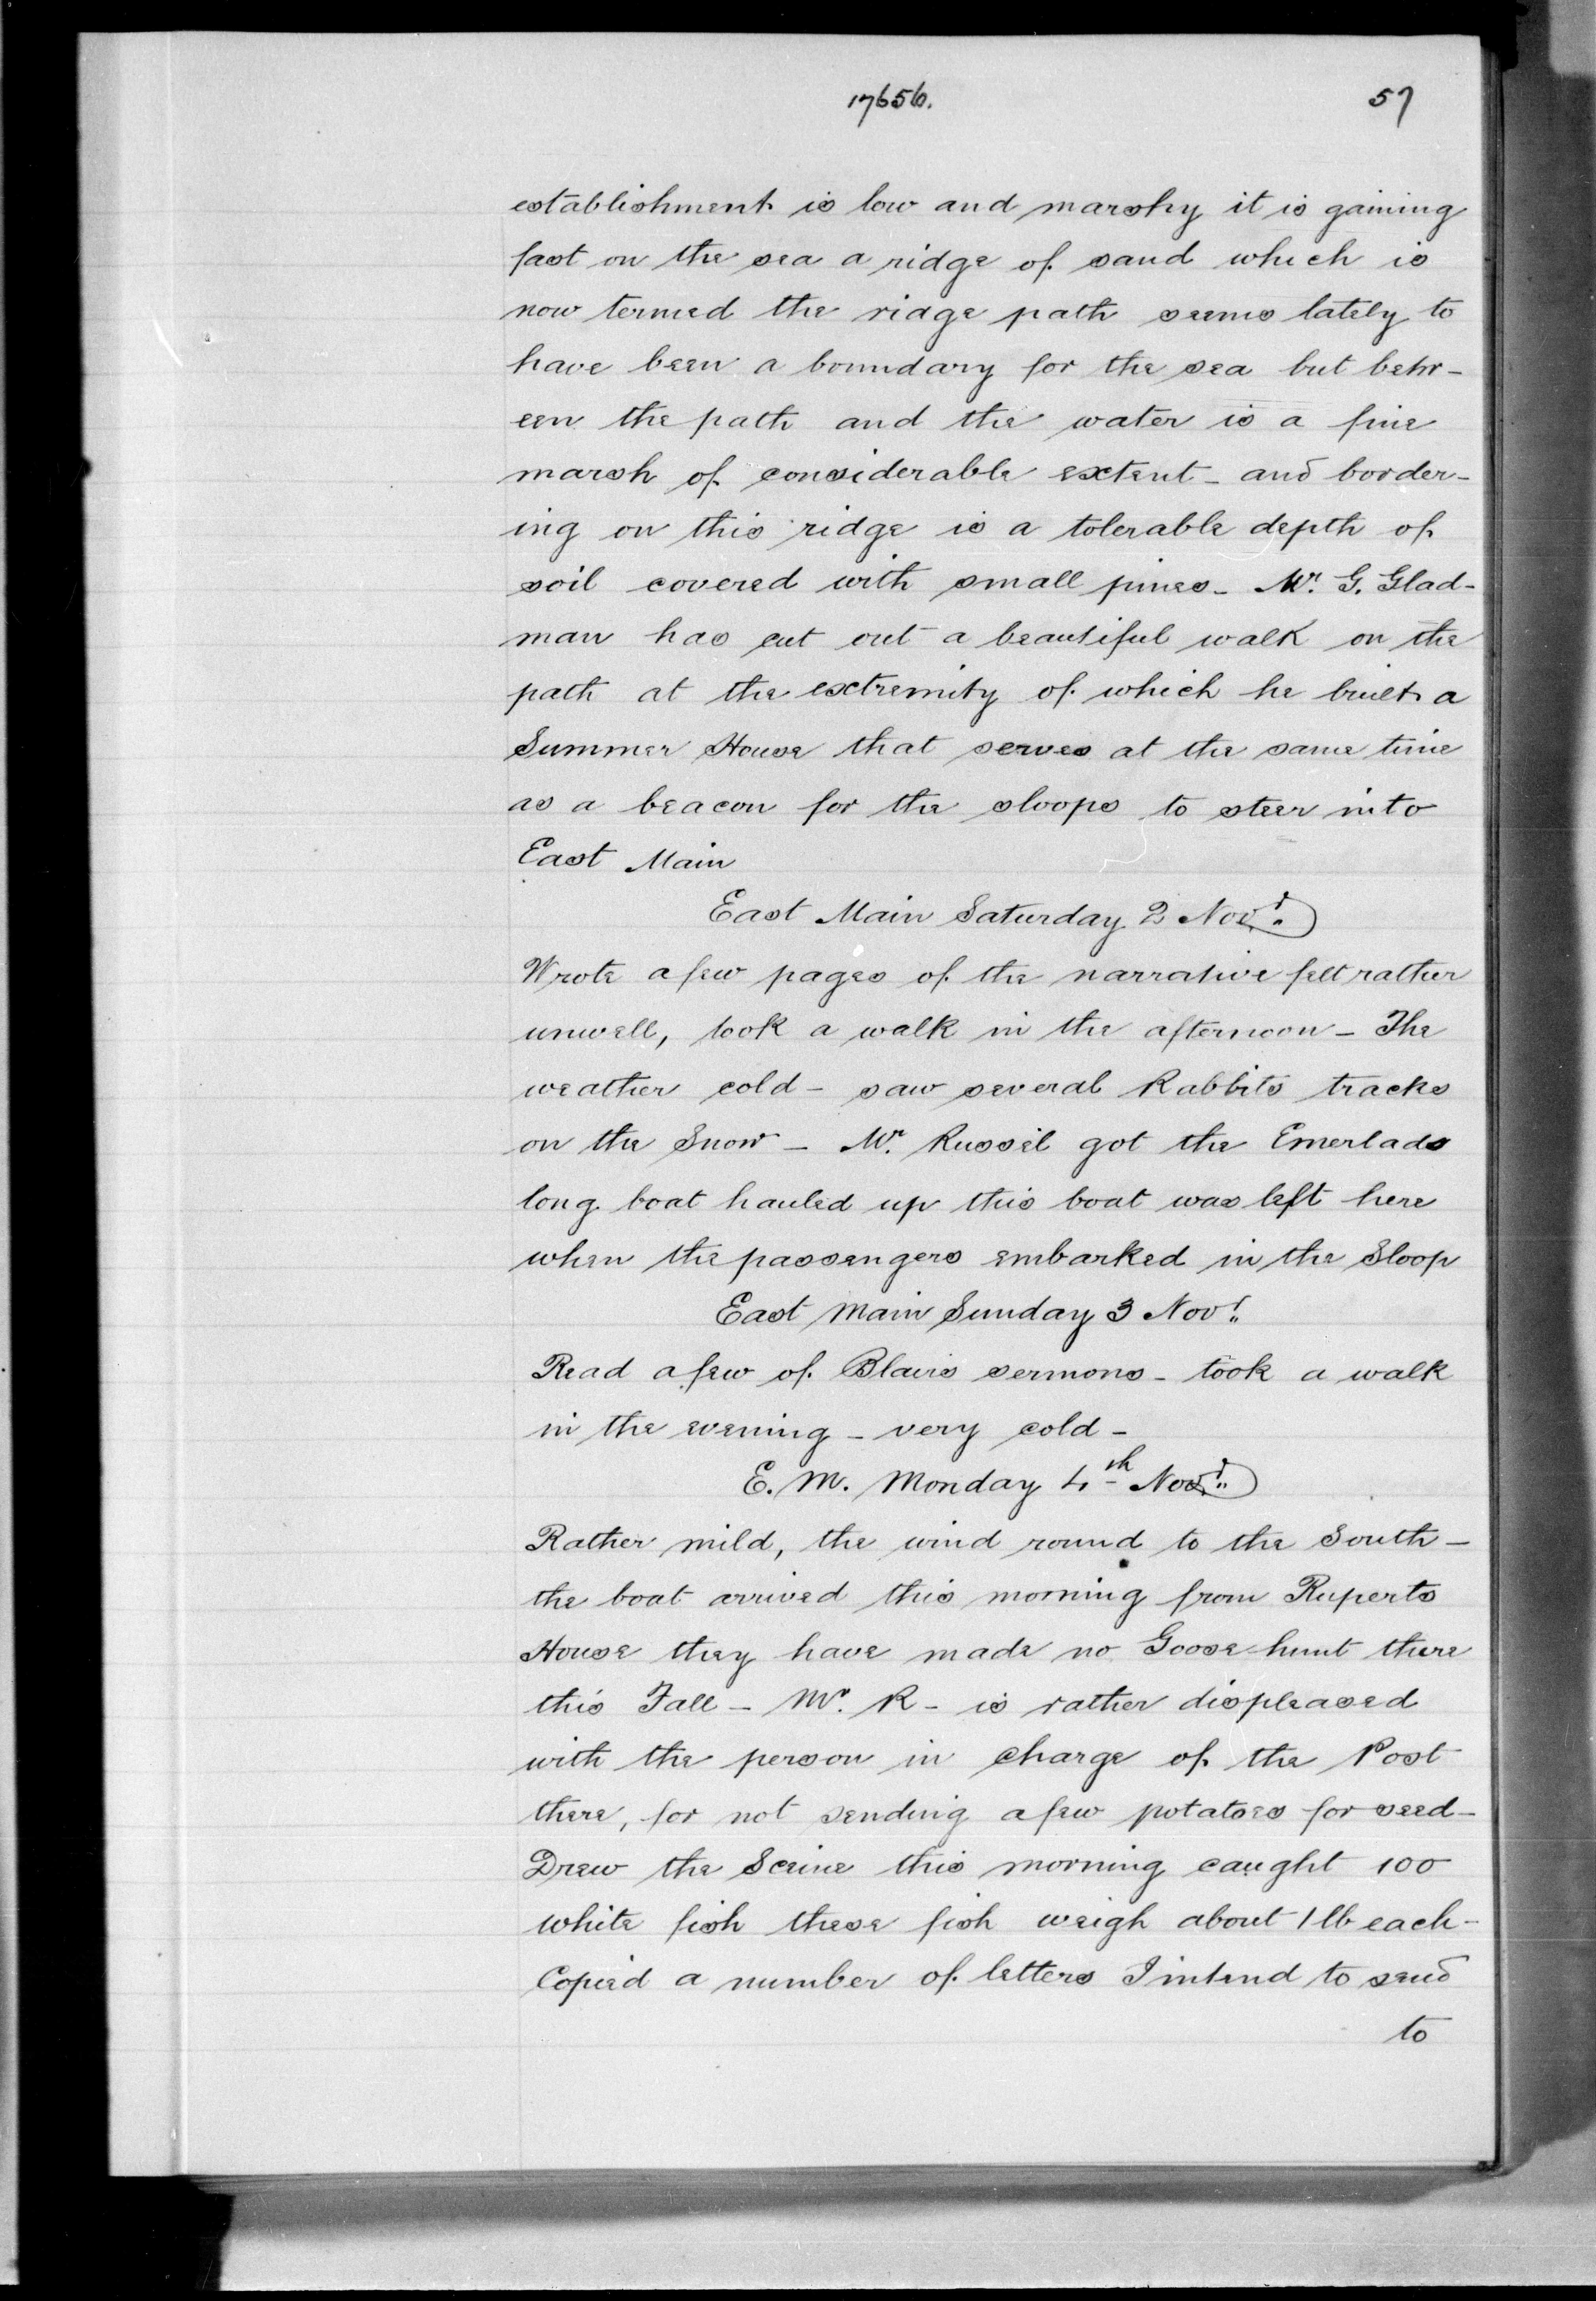 17656.
57
establishment is low and marshy it is gaining
fast on the sea a ridge of sand which is
now termed the ridge path seems lately to
have been a boundary for the sea but betw-
een the path and the water is a fine
marsh of considerable extent - and border-
ing on this ridge is a tolerable depth of
soil covered with small pines - Mr. G. Glad-
man has cut out a beautiful walk on the
path at the extremity of which he built a
Summer House that serves at the same time
as a beacon for the sloops to steer into
East Main
East Main Saturday 2 Novr.
Wrote a few pages of the narrative felt rather
unwell, took a walk in the afternoon - The
weather cold - saw several Rabbits tracks
on the Snow - Mr. Russel got the Emerlads
long boat hauled up this boat was left here
when the passengers embarked in the Sloop
East Main Sunday 3 Novr.
Read a few of Blairs sermons - took a walk
in the evening - very cold -
E. M. Monday 4th Novr.
Rather mild, the wind round to the South -
the boat arrived this morning from Ruperts
House they have made no Goose hunt there
this Fall - Mr. R - is rather displeased
with the person in Charge of the Post
there, for not sending a few potatoes for seed -
Drew the Sceine this morning caught 100
white fish these fish weigh about 1 lb each -
Copied a number of letters I intend to send
to